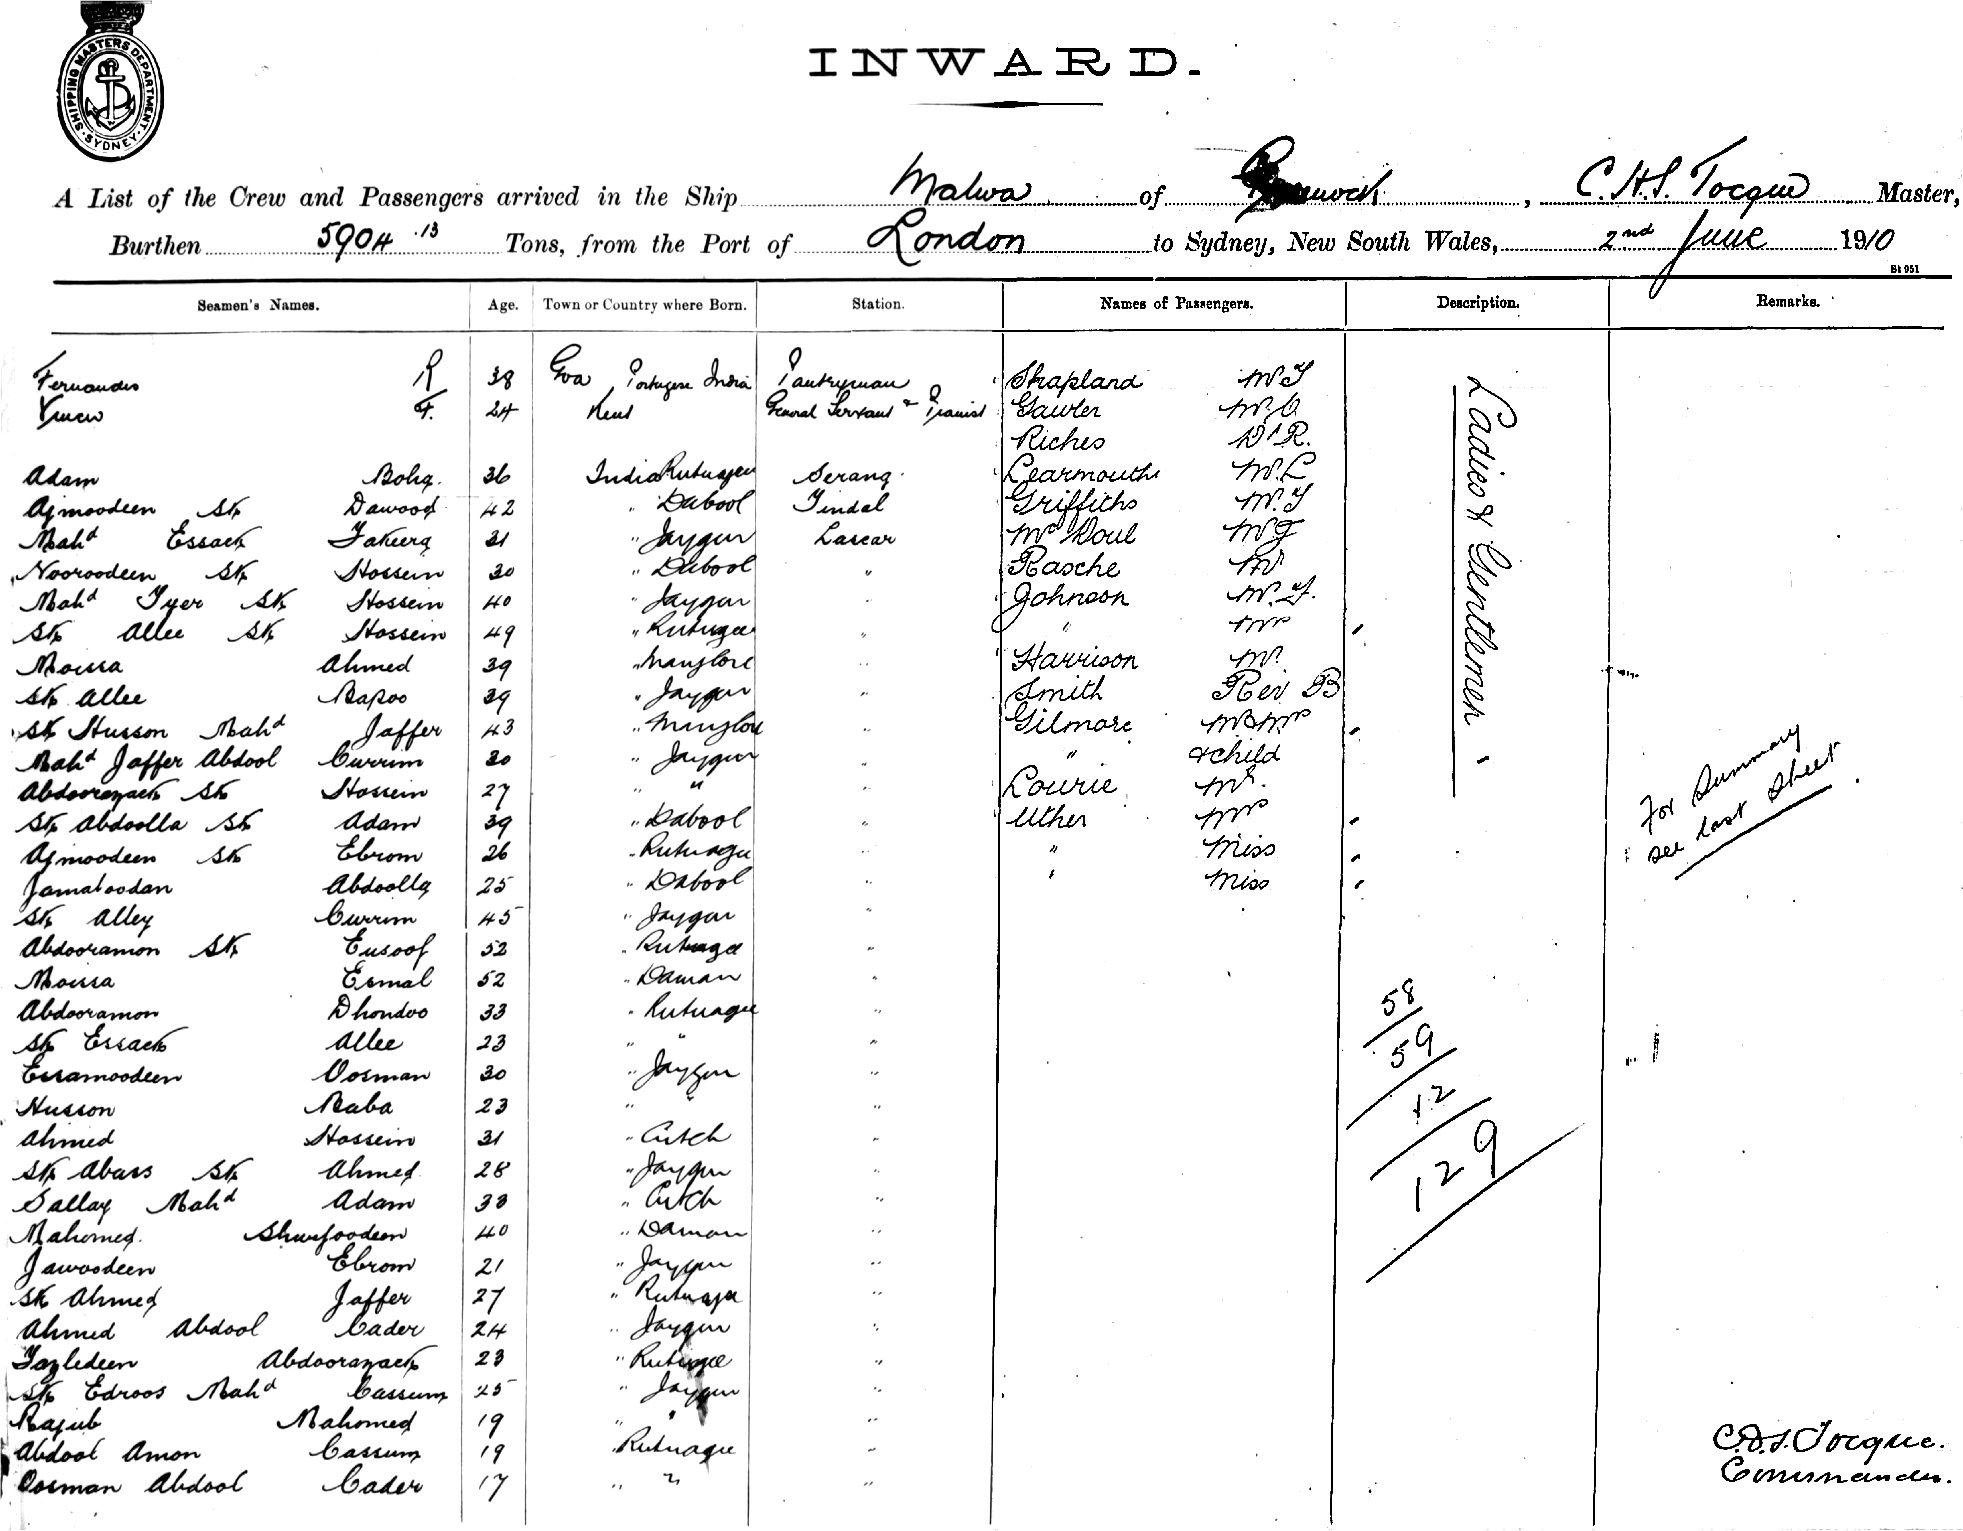 SHIPPING MASTERS DEPARTMENT
SYDNEY
INWARD.
A List of the Crew and Passengers arrived in the Ship Malwa of Greenock, C.H.S. Tocque Master,
Burthen 5904.13 Tons, from the Port of London to Sydney, New South Wales, 2nd June 1910
Bt 951
Seamen's Names. Age. Town or Country where Born. Station. Names of Passengers. Description. Remarks.
Fernandes R 38 Goa Portugese India Pantryman Shapland Mr T
F. 24 Kent General Servant & Pianist Gawler Mr C
Riches Dr R.
Adam Boha. 36 India Rutnagee Serang Learmouth Mr L
Ajmoodeen Sk Dawood 42 " Dabool Tindal Griffiths Mr T
Mahd Essack Fakeera 31 " Jaygur Lascar McDoul Mr J
Nooroodeen Sk Hossein 30 " Dabool " Rasche Mr
Mahd Tyer Sk Hossein 40 " Jaygur " Johnson Mr. F.
Sk Allee Sk Hossein 49 " Rutnagee " " Mrs "
Moussa Ahmed 39 " Manglore " Harrison Mr.
Sk Allee Bapoo 39 " Jaygur " Smith Rev B
Sk Husson Mahd Jaffer 43 " Manglore " Gilmore Mr & Mrs "
Mahd Jaffer Abdool Currim 30 " Jaygur " " & child
Abdoorazack Sk Hossein 27 " " " Lourie Mr.
Sk Abdoolla Sk Adam 39 " Dabool " Uther Mrs "
Ajmoodeen Sk Ebrom 26 " Rutnagee " " Miss "
Jamaloodan Abdoolla 25 " Dabool " " Miss "
Sk Alley Currim 45 " Jaygur "
Abdooramon Sk Eusoof 52 " Rutnagee "
Moussa Esmal 52 " Daman "
Abdooramon Dhondoo 33 " Rutnagee "
Sk Essack Allee 23 " " "
Essamoodeen Oosman 30 " Jaygur "
Husson Baba 23 " " "
Ahmed Hossein 31 " Cutch "
Sk Abass Sk Ahmed 28 " Jaygur "
Sallay Mahd Adam 33 " Cutch "
Mahomed Shurfoodeen 40 " Daman "
Jawoodeen Ebrom 21 " Jaygur "
Sk Ahmed Jaffer 27 " Rutnagee "
Ahmed Abdool Cader 24 " Jaygur "
Fazledeen Abdoorazack 23 " Rutnagee "
Sk Edroos Mahd Cassum 25 " Jaygur "
Rajub Mahomed 19 " " "
Abdool Amon Cassum 19 " Rutnagee "
Oosman Abdool Cader 17 " " "
Ladies & Gentlemen
58
59
12
129
For Summary
see last Sheet
C.H.S. Tocque.
Commander.